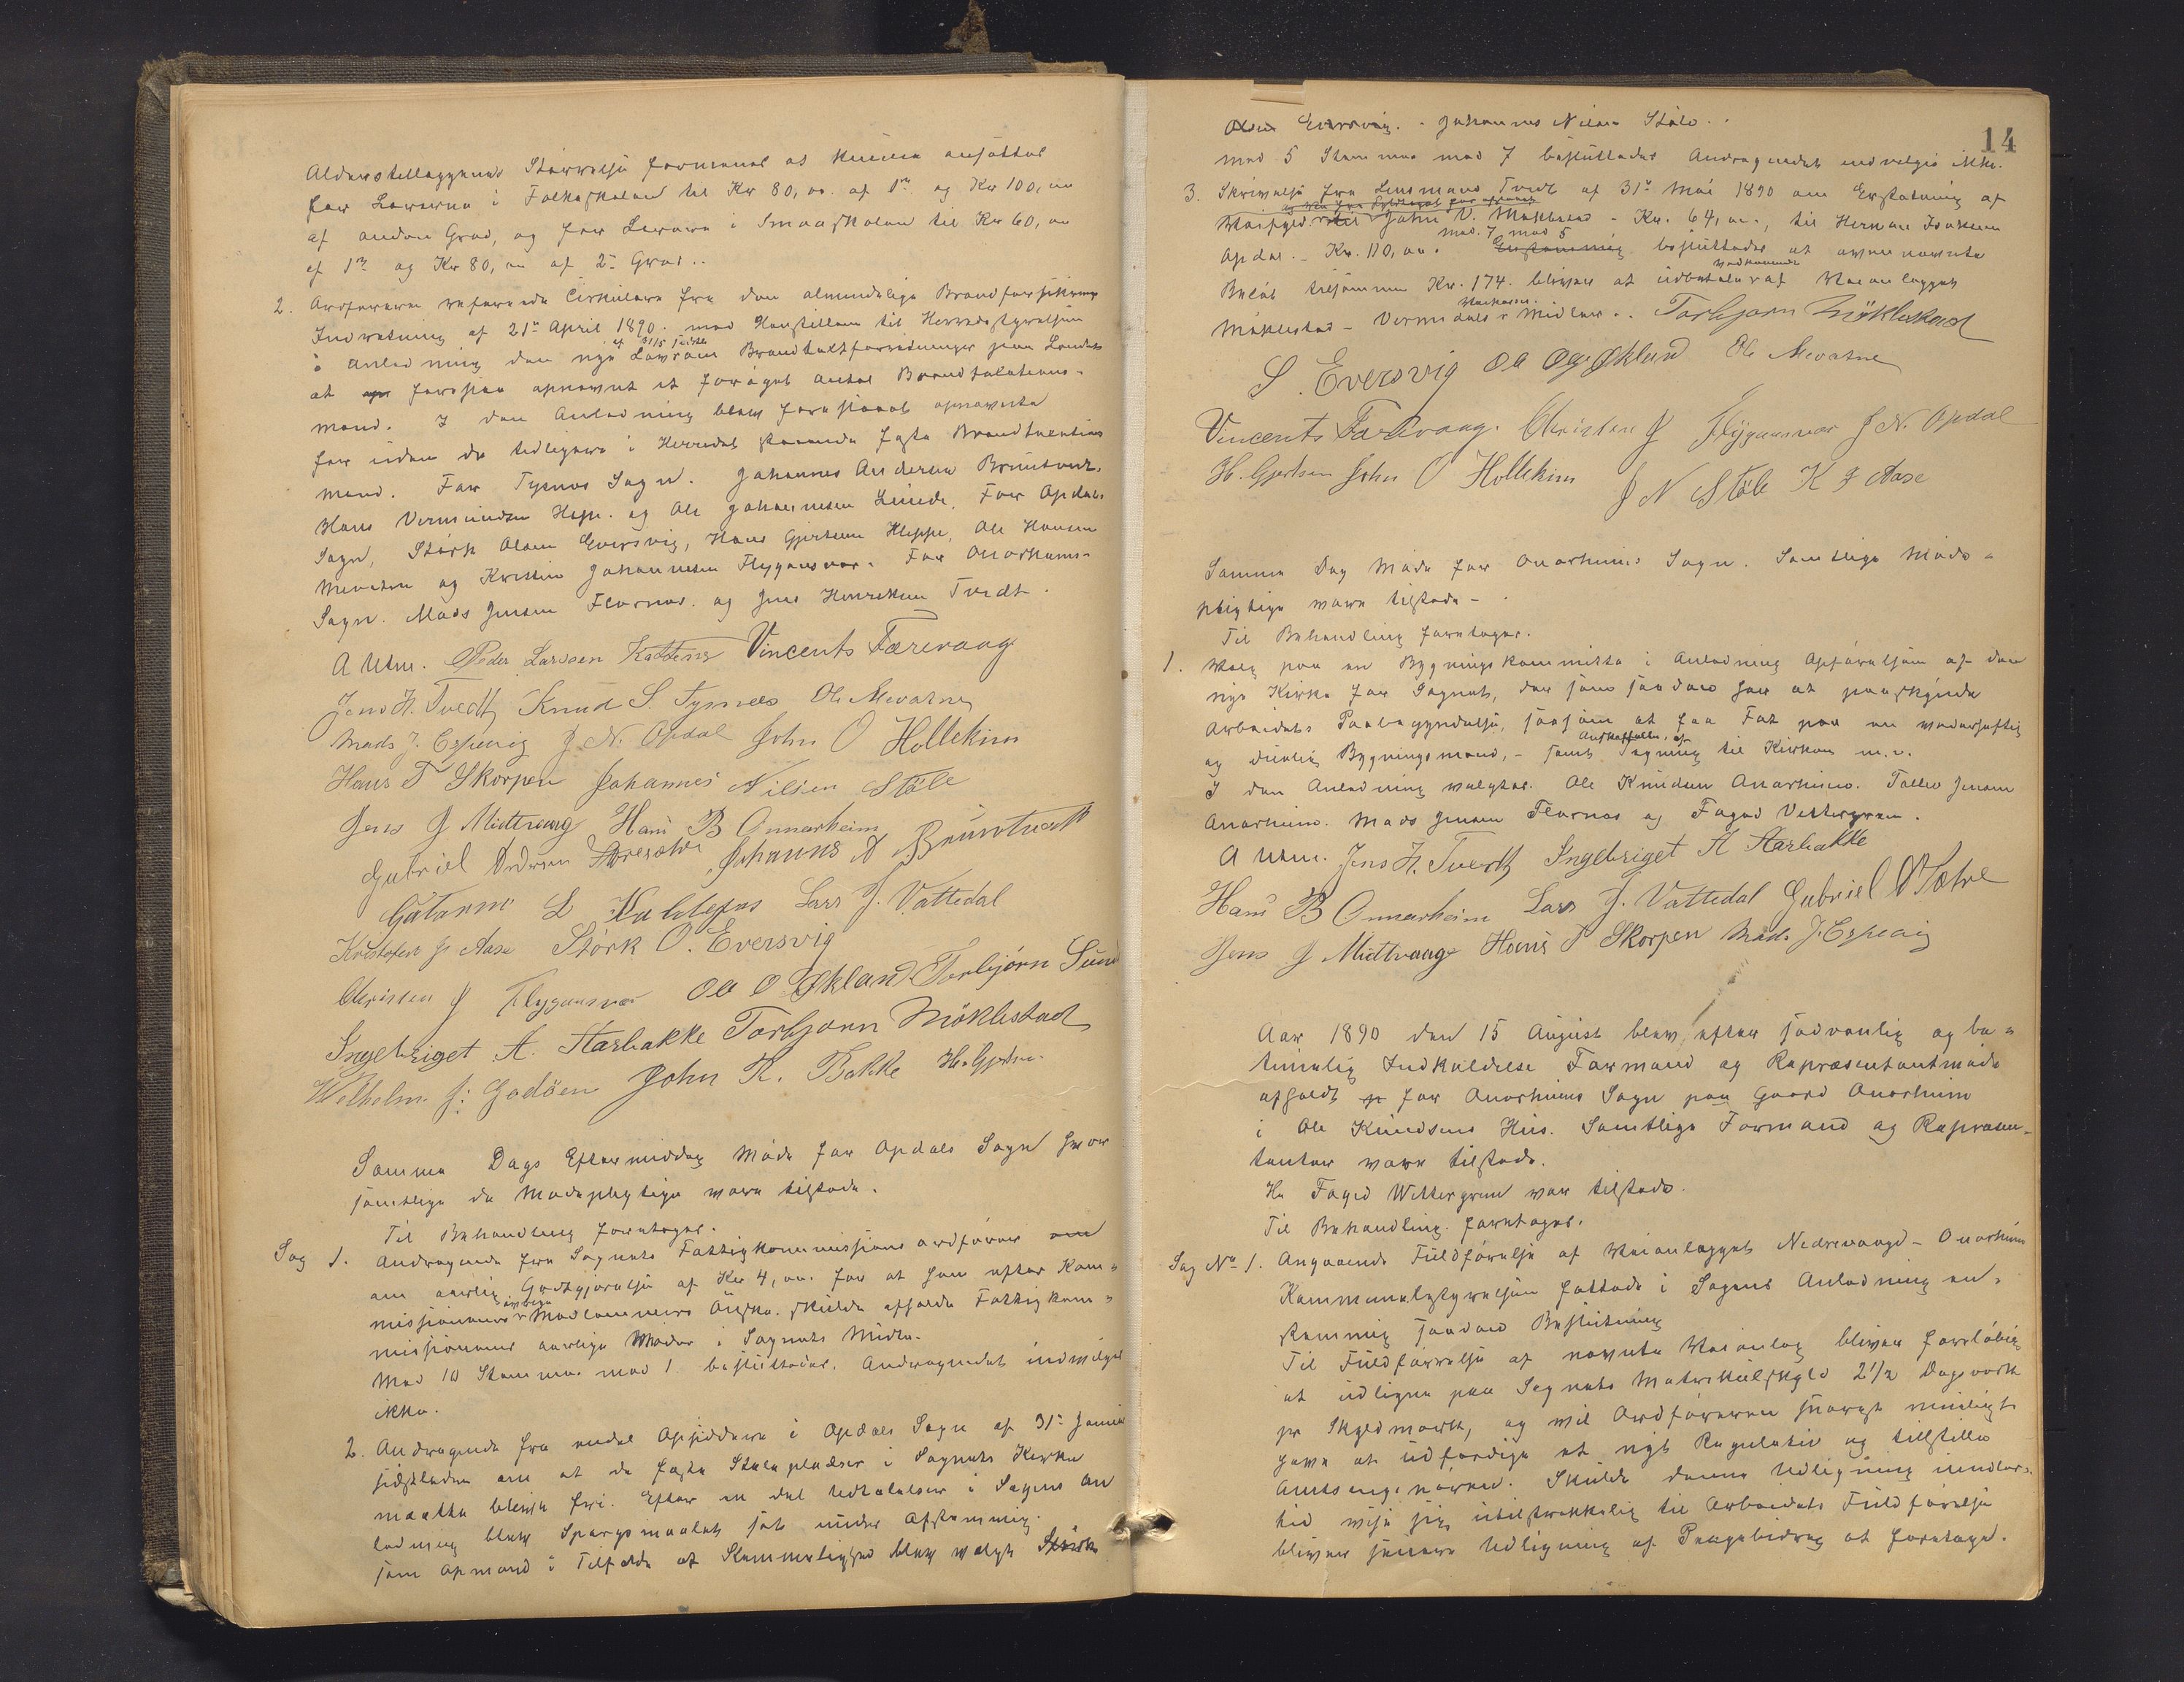 Alderstillæggenes Størrelse formenes at kunne ansættes
for Lærerne i Folkeskolen til Kr 80,00. af 1ste og Kr 100,00
af anden Grad, og for Lærere i Smaaskolen til Kr 60,00
af 1ste og Kr 80,00 af 2den Grad..
2. Ordføreren refererede Cirkulære fra den almindelige Brandforsikrings
Indretning af 21de April 1890. med Henstillen til Herredsstyrelsen
i Anledning den nye Lov om Brandtaxtforretninger paa Landet
at faa opnævnt et forøget Antal Brandtaxations-
mænd. I den Anledning blev foreslaaet opnævnte
for uden de tidligere i Herredet staaende faste Brandtaxtions
mænd. For Tysnes Sogn. Johannes Andersen Bruntveit.
Hans Vermundsen Heye. og Ole Johannesen Lunde. For Opdals
Sogn, Størk Olsen Eversvig, Hans Gjertsen Kleppe, Ole Hansen
Mevatne og Kristen Johannesen Flygansvær. For Onarheims-
Sogn. Mads Jensen Flornes. og Jens Henriksen Tvedt.
A Utne. Peder Larssen Vincents Færevaag
Jens H. Tvedt Knud S. Tysnees Ole Mevatne
Mads J. Espevig J. N. Opdal John O Hollekim
Hans T Skorpen Johannes Nilsen Støle
Jens J Midtvaag Hans B Onnarheim
Gabriel Andersen Johannes A Bruntvedt
Guttorm L Lars J. Vattedal
Kristofer J Aase Størk O. Eversvig
Christen J Flygansvær Ole O Økland Torbjørn Sund
Ingebriget A. Aarbakke Torbjørn Møklestad
Wilhelm J: Godöen John K. Bakke H. Gjertsen
Samme Dags Eftermiddag Møde for Opdals Sogn hvor
samtlige de Mødepligtige vare tilstede.
Til Behandling foretoges.
Sag 1. Andragende fra Sognets Fattigkommissions ordfører
om aarlig Godtgjørelse af Kr 4,00. for at han efter Kom-
missionens øvrige Medlemmers Ønske. skulde afholde Fattigkom-
missionens aarlige Møder i Sognets Midte.
Med 10 Stemmer mod 1. besluttedes. Andragendet indvilges
ikke.
2. Andragende fra endel Opsiddere i Opdals Sogn af 31te Januar
sidstleden om at de faste Stolepladser i Sognets Kirke
maatte blive fri. Efter en del Udtalelser i Sagens An
ledning blev Spørgsmaalet sat under Afstemning.
som Opmand i Tilfælde af Stemmelighed blev valgt Størk
14
Olsen Eversvig. - Johannes Nilsen Støle..
med 5 Stemmer mod 7 besluttedes Andragendet indvilges ikke.
3. Skrivelse fra Lensmand Tvedt af 31te Mai 1890 om Erstatning af
Veifyld til John V. Møklestad - Kr. 64,00., til Herman Isaksen
Opdal. - Kr. 110,00. med. 7 mod 5 Enstemmig besluttedes at ovennævnte
Beløb tilsammen Kr. 174. bliver at udbetale af vedkommende Veianlæggets
Møklestad - Vermedals Veikasse Midler.. Torbjørn Møklestad
S. Eversvig Ole O Økland Ole Mevatne
Vincents Færevaag. Christen J Flygansvær J N. Opdal
H. Gjertsen John O Hollekim J N Støle K J Aase
Samme Dag Møde for Onarheims Sogn. Samtlige Møde-
pligtige vare tilstede -
Til Behandling foretoges.
1. Valg paa en Bygningskommitte i Anledning Opførelsen af den
nye Kirke for Sognet, der som saadan har at paaskynde
Arbeidets Paabegyndelse, saasom at faa Fat paa en vederheftig
og duelig Bygningsmand, - samt Anskaffelse af Tegning til Kirken m.v.
I den Anledning valgtes. Ole Knudsen Onarheim. Tollev Jensen
Onarheim. Mads Jensen Flornes og Foged Vettergren.
A Utne. Jens H. Tvedt Ingebriget A Aarbakke
Hans B Onnarheim Lars J. Vattedal Gabriel A Sætre
Jens J Midtvaage Hans T Skorpen Mads J. Espevig
Aar 1890 den 15 August blev efter sædvanlig og be-
timelig Indkaldelse Formand og Repræsentantmøde
afholdt for Onarheims Sogn paa Gaard Onarheim
i Ole Knudsens Hus. Samtlige Formænd og Repræsen-
tanter vare tilstede.
Hr Foged Wettergren var tilstede.
Til Behandling. foretoges.
Sag No 1. Angaaende Fuldførelse af Veianlægget Nedrevaage - Onarheim
Kommunalstyrelsen fattede i Sagens Anledning en-
stemmig saadan Beslutning
Til Fuldførelse af nævnte Veianlæg bliver forløbig
at udligne paa Sognets Matrikulskyld 2 1/2 Dagsverk
pr Skyldmark, og vil Ordføreren snarest muligt
have at udfærdige et nyt Regulativ og tilstille
Amtsingeniøren. Skulde denne Udligning imidler-
tid vise sig utilstrækkelig til Arbeidets Fuldførelse
bliver senere Udligning af Pengebidrag at foretage.